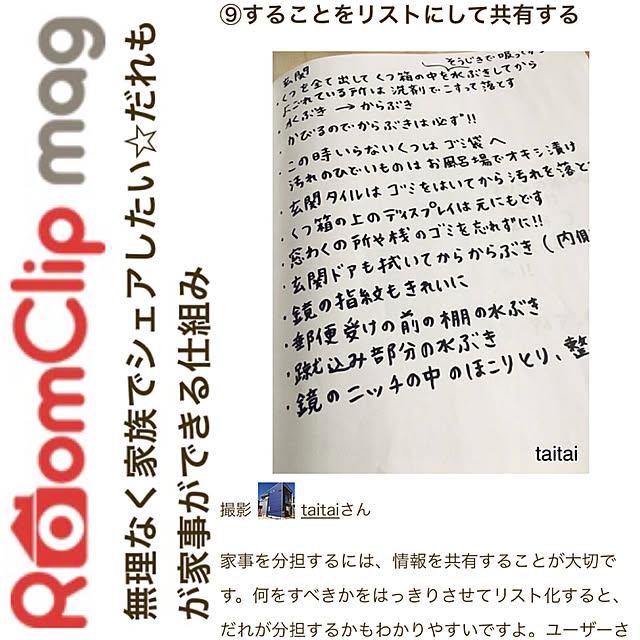 RoomClip mag
無理なく家族でシェアしたい☆だれも
が家事ができる仕組み
⑨することをリストにして共有する
そうじきで吸ってから
玄関
・くつを全て出してくつ箱の中を水ぶきしてから
よごれている所は洗剤でこすって落とす
水ぶき→からぶき
・かびるのでからぶきは必ず!!
・この時いらないくつはゴミ袋へ
汚れのひどいものはお風呂場でオキシ漬け
・玄関タイルはゴミをはいてから汚れを落と
・くつ箱の上のディスプレイは元にもどす
・窓わくの所や桟のゴミを忘れずに!!
・玄関ドアも拭いてからからぶき(内側
・鏡の指紋もきれいに
・郵便受けの前の棚の水ぶき
・蹴込み部分の水ぶき
・鏡のニッチの中のほこりとり、整
taitai
撮影 taitaiさん
家事を分担するには、情報を共有することが大切で
す。何をすべきかをはっきりさせてリスト化すると、
だれが分担するかもわかりやすいですよ。ユーザーさ